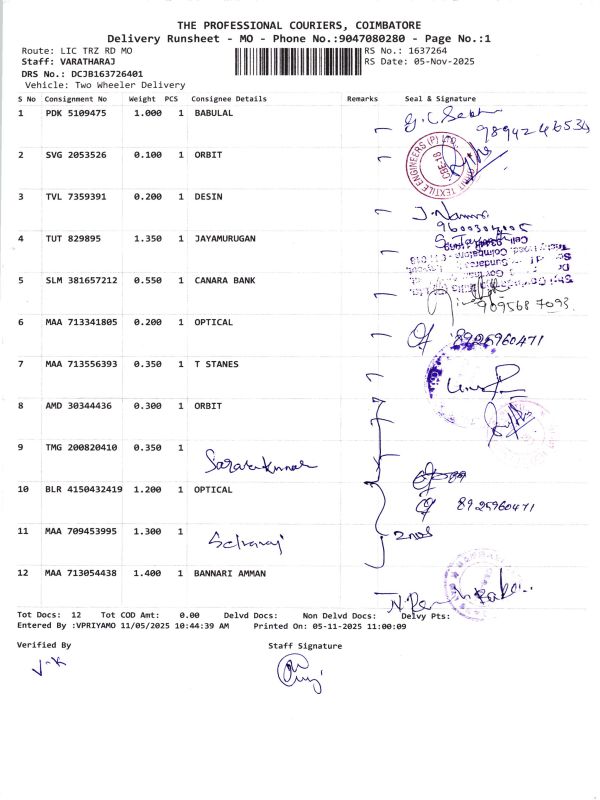 THE PROFESSIONAL COURIERS, COIMBATORE
Delivery Runsheet - MO - Phone No.:9047080280 - Page No.:1
Route: LIC TRZ RD MO RS No.: 1637264
Staff: VARATHARAJ RS Date: 05-Nov-2025
DRS No.: DCJB163726401
Vehicle: Two Wheeler Delivery
S No Consignment No Weight PCS Consignee Details Remarks Seal & Signature
1 PDK 5109475 1.000 1 BABULAL
9894246534
2 SVG 2053526 0.100 1 ORBIT
TEXTILE ENGINEERS (P) LTD. CBE-18
3 TVL 7359391 0.200 1 DESIN
4 TUT 829895 1.350 1 JAYAMURUGAN
5 SLM 381657212 0.550 1 CANARA BANK
9095687093
6 MAA 713341805 0.200 1 OPTICAL
8925960471
7 MAA 713556393 0.350 1 T STANES
8 AMD 30344436 0.300 1 ORBIT
9 TMG 200820410 0.350 1
Saravakumar
10 BLR 4150432419 1.200 1 OPTICAL
8925960471
11 MAA 709453995 1.300 1
Selvaraj
2nos
12 MAA 713054438 1.400 1 BANNARI AMMAN
Tot Docs: 12 Tot COD Amt: 0.00 Delvd Docs: Non Delvd Docs: Delvy Pts:
Entered By :VPRIYAMO 11/05/2025 10:44:39 AM Printed On: 05-11-2025 11:00:09
Verified By Staff Signature